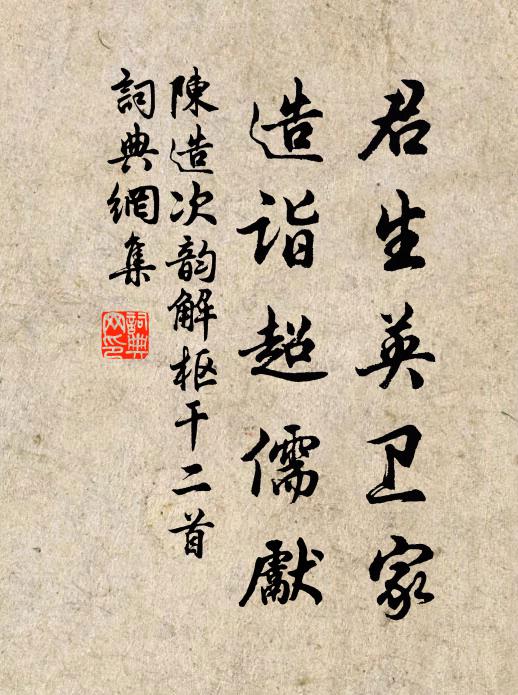 君生英卫家
造诣超儒獻
陳造次韵解枢干二首
詞典網集
詞典網印